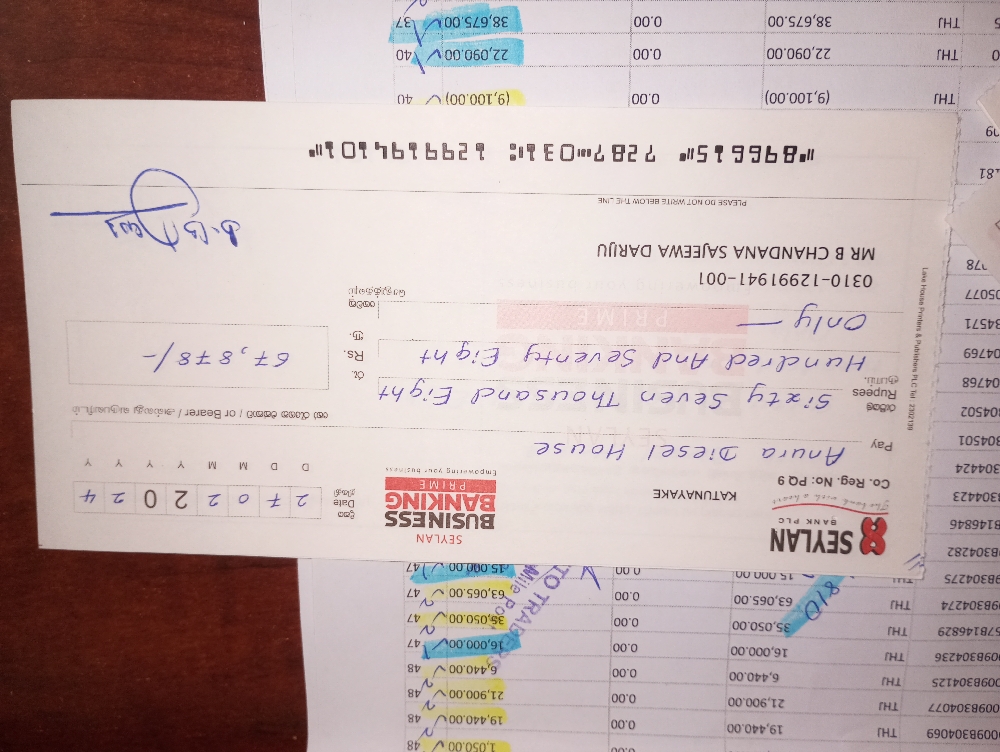 SEYLAN
BANK PLC
The bank with a heart
Co. Reg. No: PQ 9
KATUNAYAKE
SEYLAN
BUSINESS
BANKING
PRIME
Empowering your business
දිනය
திகதி
Date
2 7 0 2 2 0 2 4
D D M M Y Y Y Y
Pay
Anura Diesel House
රුපියල්
Rupees
ரூபாய்
Sixty Seven Thousand Eight
Hundred And Seventy Eight
Only —
රු.
Rs.
ரூ.
67,878/-
0310-12991941-001
MR B CHANDANA SAJEEWA DARIJU
PLEASE DO NOT WRITE BELOW THE LINE
Lake House Printers & Publishers PLC
"896615" 7287"031: 1299194101"
1,050.00 48
THJ 19,440.00 0.00 19,440.00 48
009B304069
THJ 21,900.00 0.00 21,900.00 48
009B304077
THJ 6,440.00 0.00 6,440.00 48
009B304125
THJ 16,000.00 0.00 16,000.00 47
009B304236
THJ 35,050.00 0.00 35,050.00 47
57B146829
THJ 63,065.00 0.00 63,065.00 47
09B304274
THJ 15,000.00 0.00 15,000.00 47
09B304275
9B304282
B146846
304423
304424
304501
304502
04768
04769
34571
05077
978
THJ (9,100.00) 0.00 (9,100.00) 40
THJ 22,090.00 0.00 22,090.00 40
THJ 38,675.00 0.00 38,675.00 37
810
TO TRADERS